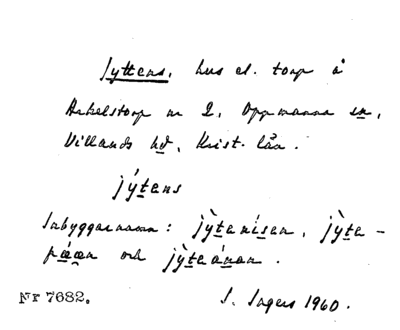 Jyttens, hus el. torp å
Arkelstorp nr 2, Oppmanna sn,
Villands hd, Krist. län.
jýtens
Inbyggarnamn: jỳtenísen, jỳte-
och jỳteánan.
Nr 7682. S. Ingers 1960.